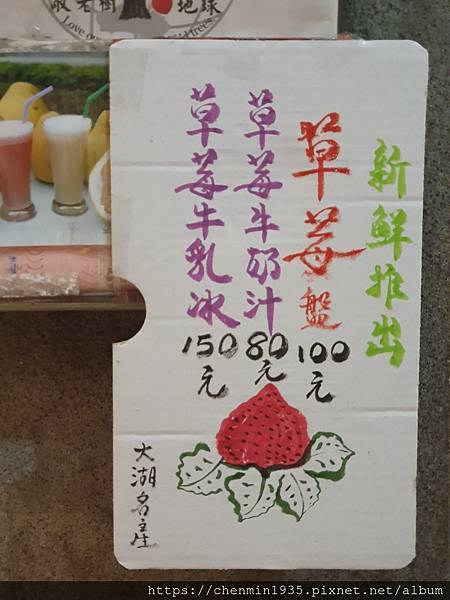 敬老樹
地球
Love ou
trees
新鮮推出
草莓盤
100元
草莓牛奶汁
80元
草莓牛乳冰
150元
大湖名產
https://chenmin1935.pixnet.net/album